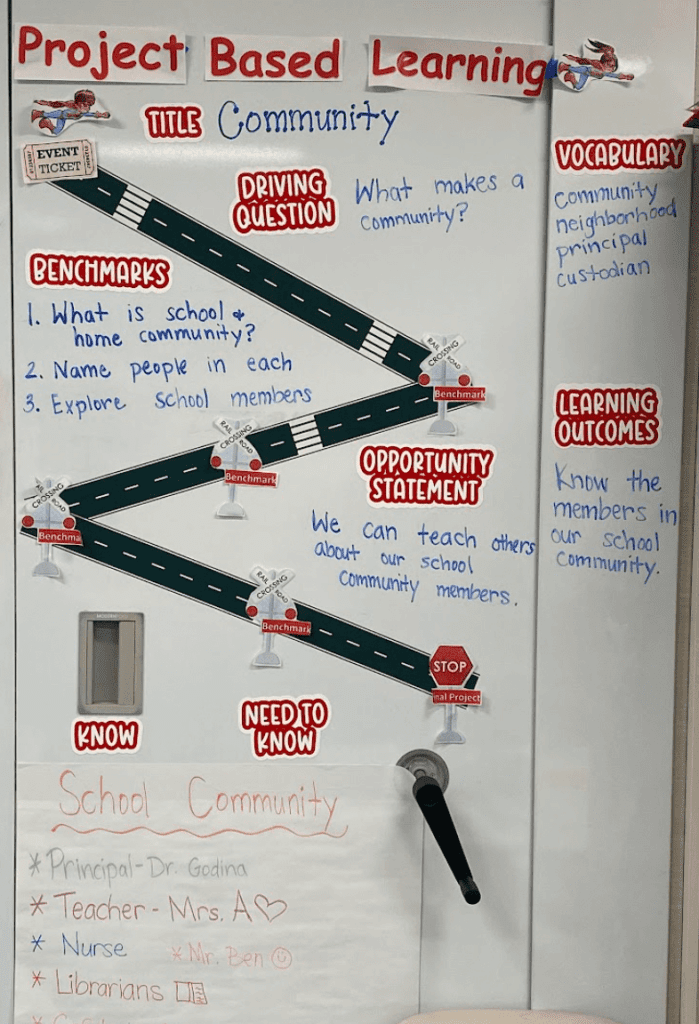 Project Based Learning
TITLE Community
EVENT
TICKET
DRIVING
QUESTION
What makes a
community?
VOCABULARY
community
neighborhood
principal
custodian
BENCHMARKS
1. What is school &
home community?
2. Name people in each
3. Explore school members
RAIL ROAD
CROSSING
Benchmark
RAIL ROAD
CROSSING
Benchmark
RAIL ROAD
CROSSING
Benchma
OPPORTUNITY
STATEMENT
We can teach others
about our school
community members.
LEARNING
OUTCOMES
Know the
members in
our school
Community.
RAIL ROAD
CROSSING
Benchmark
STOP
inal Project
KNOW
NEED TO
KNOW
School Community
* Principal - Dr. Godina
* Teacher - Mrs. A
* Nurse
* Mr. Ben
* Librarians